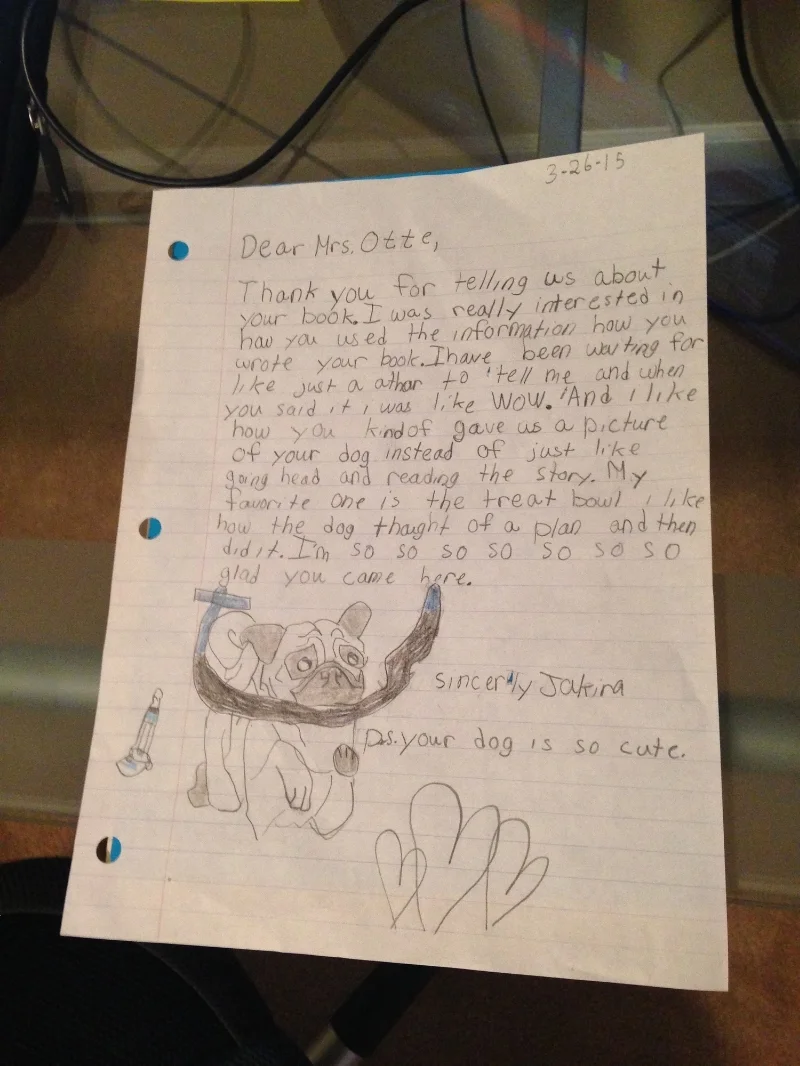 3-26-15
Dear Mrs. Otte,
Thank you for telling us about
your book. I was really interested in
how you used the information how you
wrote your book. I have been waiting for
like just a athar to tell me and when
you said it i was like WOW. And i like
how you kindof gave us a picture
of your dog instead of just like
going head and reading the story. My
favorite one is the treat bowl i like
how the dog thaight of a plan and then
did it. I'm so so so so so so so
glad you came here.
sincerly Jakira
p.s. your dog is so cute.